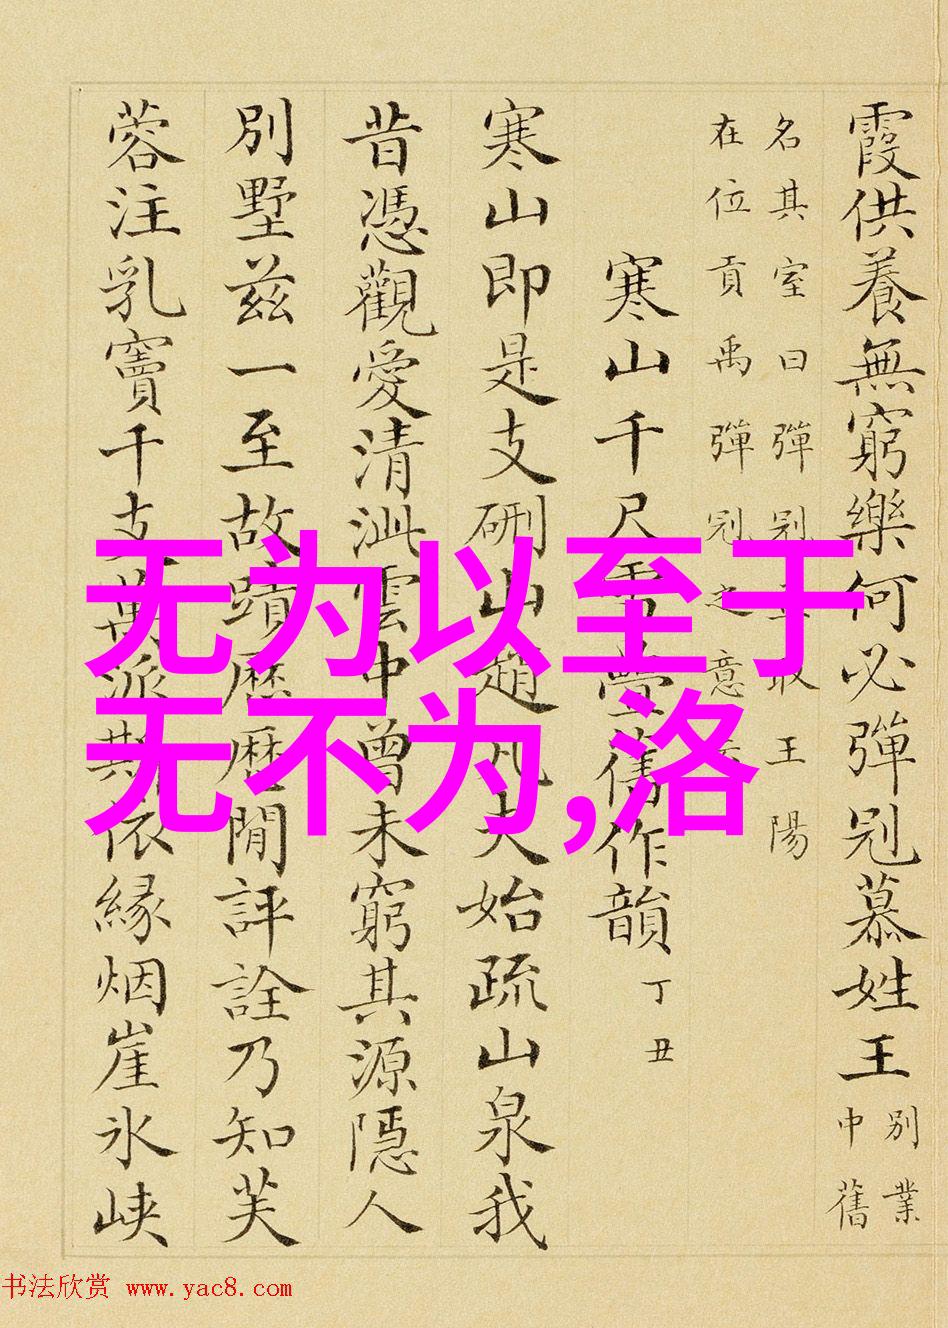 霞供養無窮樂何必彈冠慕姓王
别業
中舊
名其室曰彈冠取王陽
在位貢禹彈冠之意
寒山千尺雪舊作韻
丁丑
寒山即是支硎山趙凡夫始疏山泉我
昔憑觀愛清泚雲中曾未窮其源隱人
別墅兹一至故蹟歷歷閒評詮乃知芙
蓉注乳竇千支萬派斯依緣烟崖氷峡
无为以至于
无不为,洛
书法欣赏 www.yac8.com